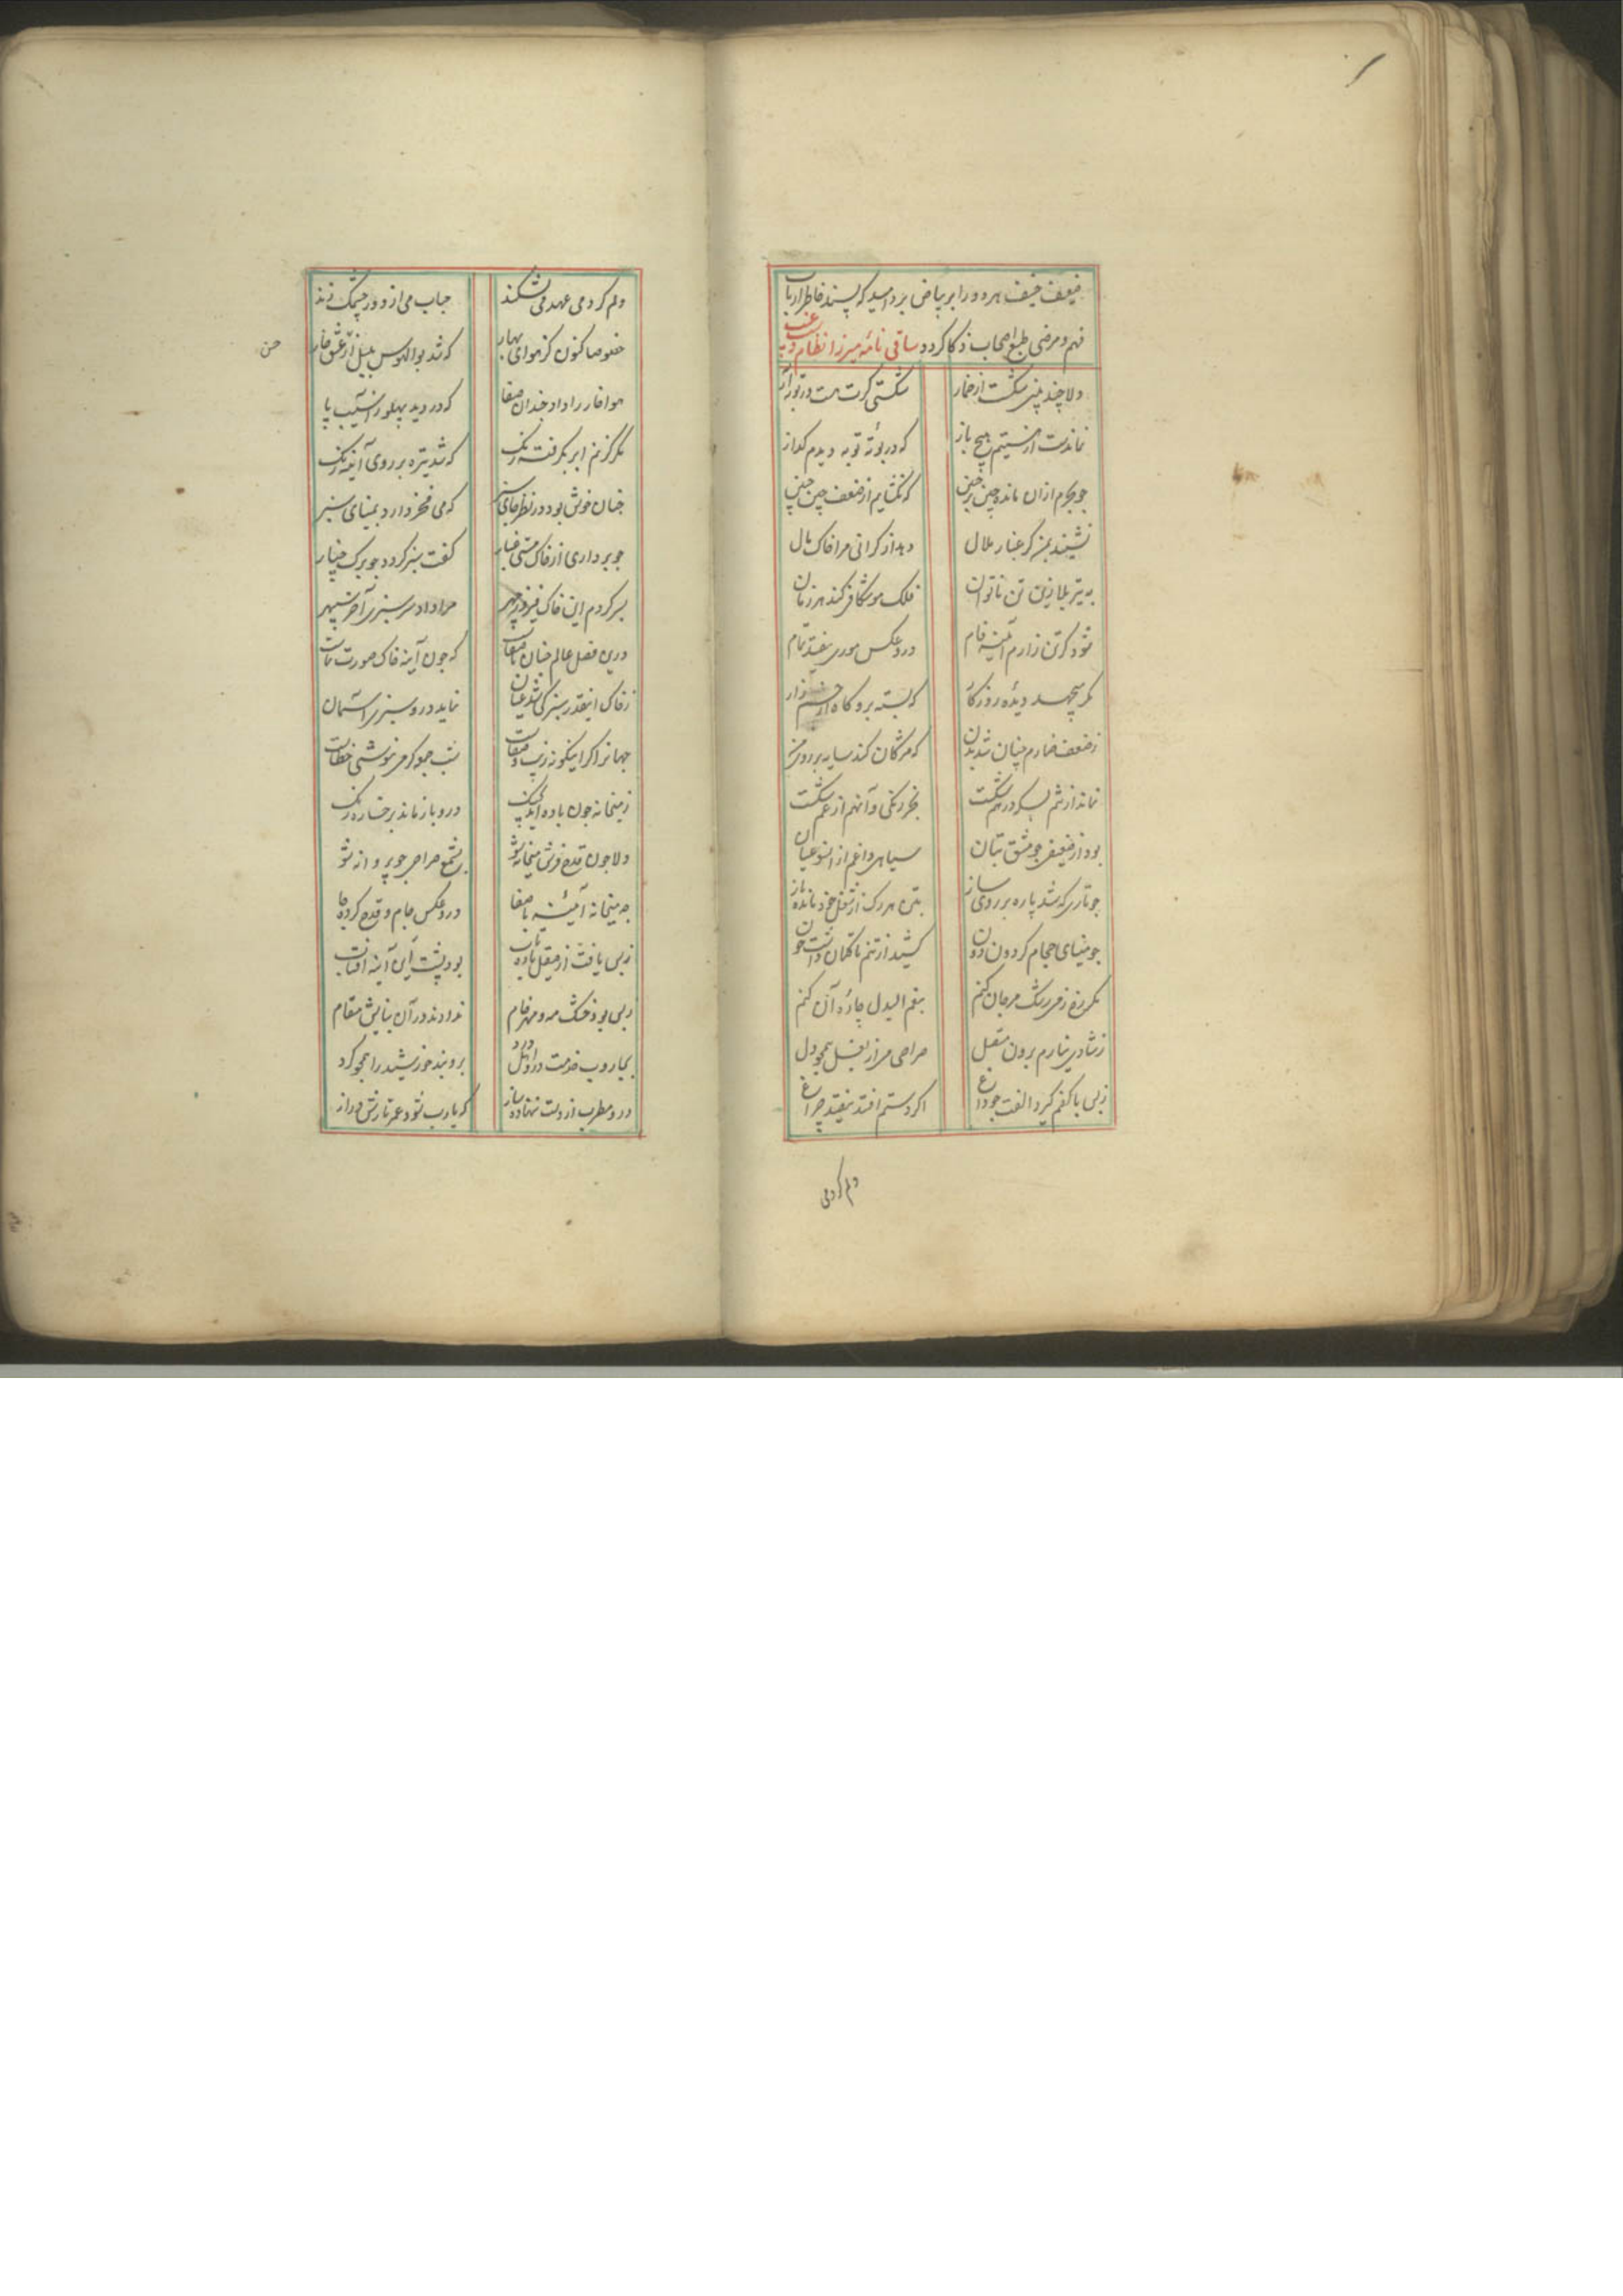 ضعیف نحیف هر دو را بر بیاض برد امید که پسند خاطر ارباب
فهم و مرضی طبع اصحاب ذکا کردد ساقی نامه میرزا نظام دست غیب
دلا چند بینی شکست از خمار شکستی کرت هست در توبه آر
نماندست از هستیم هیچ باز که در بوته توبه دیدم کداز
چو بحرم ازان مانده چین بر جبین که نکشایم از ضعف چین جبین
نشیند بمن کر غبار ملال دهد از کرانی مرا خاک مال
به تیر بلا زین تن ناتوان فلک موشکافی کند هر زمان
شود کر تن زارم آئینه فام درو عکس موری نیفتد تمام
مکر پیچد دیده روزکار که بسته برو کاه از جسم زار
ز ضعف خمارم چنان شد بدن که مژکان کند سایه بر روی من
نماند از تنم بسکه درهم شکست بجز رنکی و آنهم از غم شکست
بود از ضعیفی چو مشق بتان سیاهی داغم از انسو عیان
چو تاری که شد پاره بر روی ساز بتن هر رک از شغل خود مانده باز
چو مینای حجام کردون دون کشید از تنم تا کمان داشت خون
مکر مژه ز می رشک مرجان کنم بنعم البدل چاره آن کنم
ز شادی نیارم برون متصل صراحی می از بغل همچو دل
ز بس با کفم کیرد الفت چو داغ اکر دستم افتد نیفتد چراغ
دلم کر دمی
دلم کر دمی عهد می نشکند حباب می از دور چشمک زند
خصوصا کنون کز هوای بهار که شد بوالهوس بلبل از عشق خار
حسن
هوا خار را داد چندان صفا که دزدید پهلو ز آسیب پا
مکر کز نم ابر بکرفت رنک که شد تیره بر روی آیینه رنک
چنان خوش بود در نظر جای سبز که می فخر دارد بمینای سبز
چو برداری از خاک مشتی غبار کفت سبز کردد چو برک چنار
بسر کردم این خاک فیروزه چهر مرا داد سرسبزی آخر سپهر
درین فصل عالم چنان با صفاست که چون آینه خاک صورت نماست
ز خاک اینقدر سبزکی شد عیان نماید درو سبزی آسمان
جهانرا اکر اینکونه زیب و صفاست بتیب جو کر می ننوشی خطاست
ز میخانه چون باده آید بچنک درو باز ماند بر خساره رنک
دلا چون قدح فرش میخانه شو بشمع صراحی چو پروانه شو
چه میخانه آئینه با صفا درو عکس جام و قدح کرده جا
ز بس یافت از صیقل باده تاب بود پشت آن آینه آفتاب
ز بس بود خشت مه و مهر خام ندادند در آن بنایش مقام
بجاروب خدمت در اول ورد بروبند خورشید را همچو کرد
درو مطرب از دلت ننهاده ساز که یارب شود عمر تارش دراز